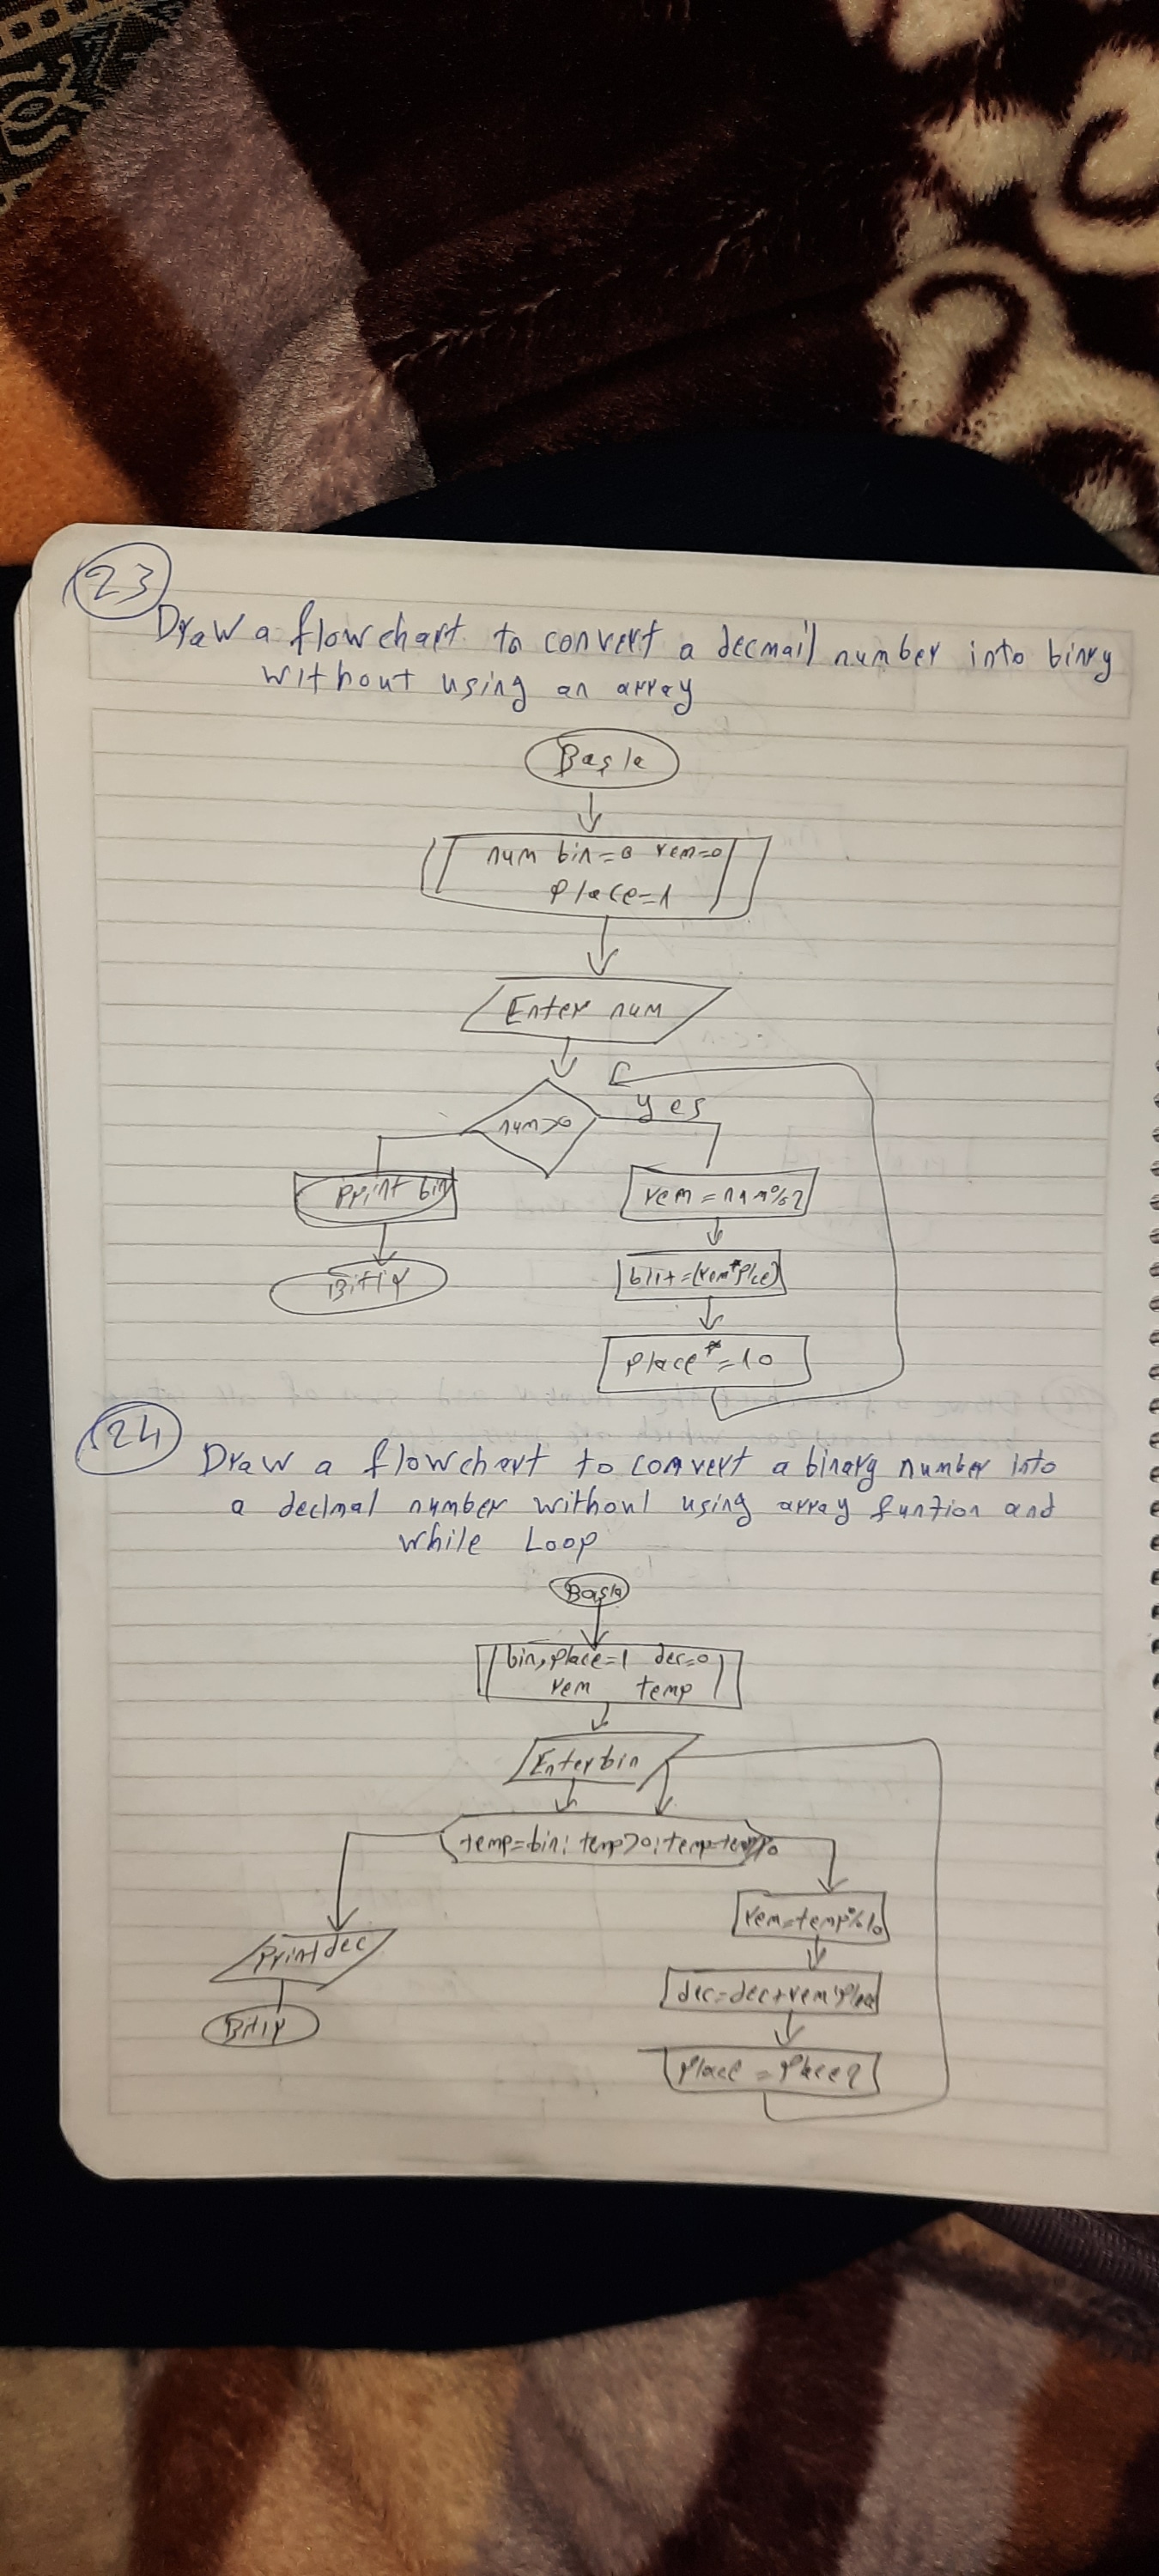 23
Draw a flowchart to convert a decmail number into binry
without using an array
Başla
num bin=0 rem=0
place=1
Enter num
num>0
yes
print bin
rem=num%2
Bitir
place*=10
24
Draw a flowchart to convert a binary number into
a decimal number without using array funtion and
while Loop
Başla
bin, place=1 dec=0
rem temp
Enter bin
temp=bin; temp>0;
rem=temp%10
print dec
dec=dec+rem*place
Bitir
place =